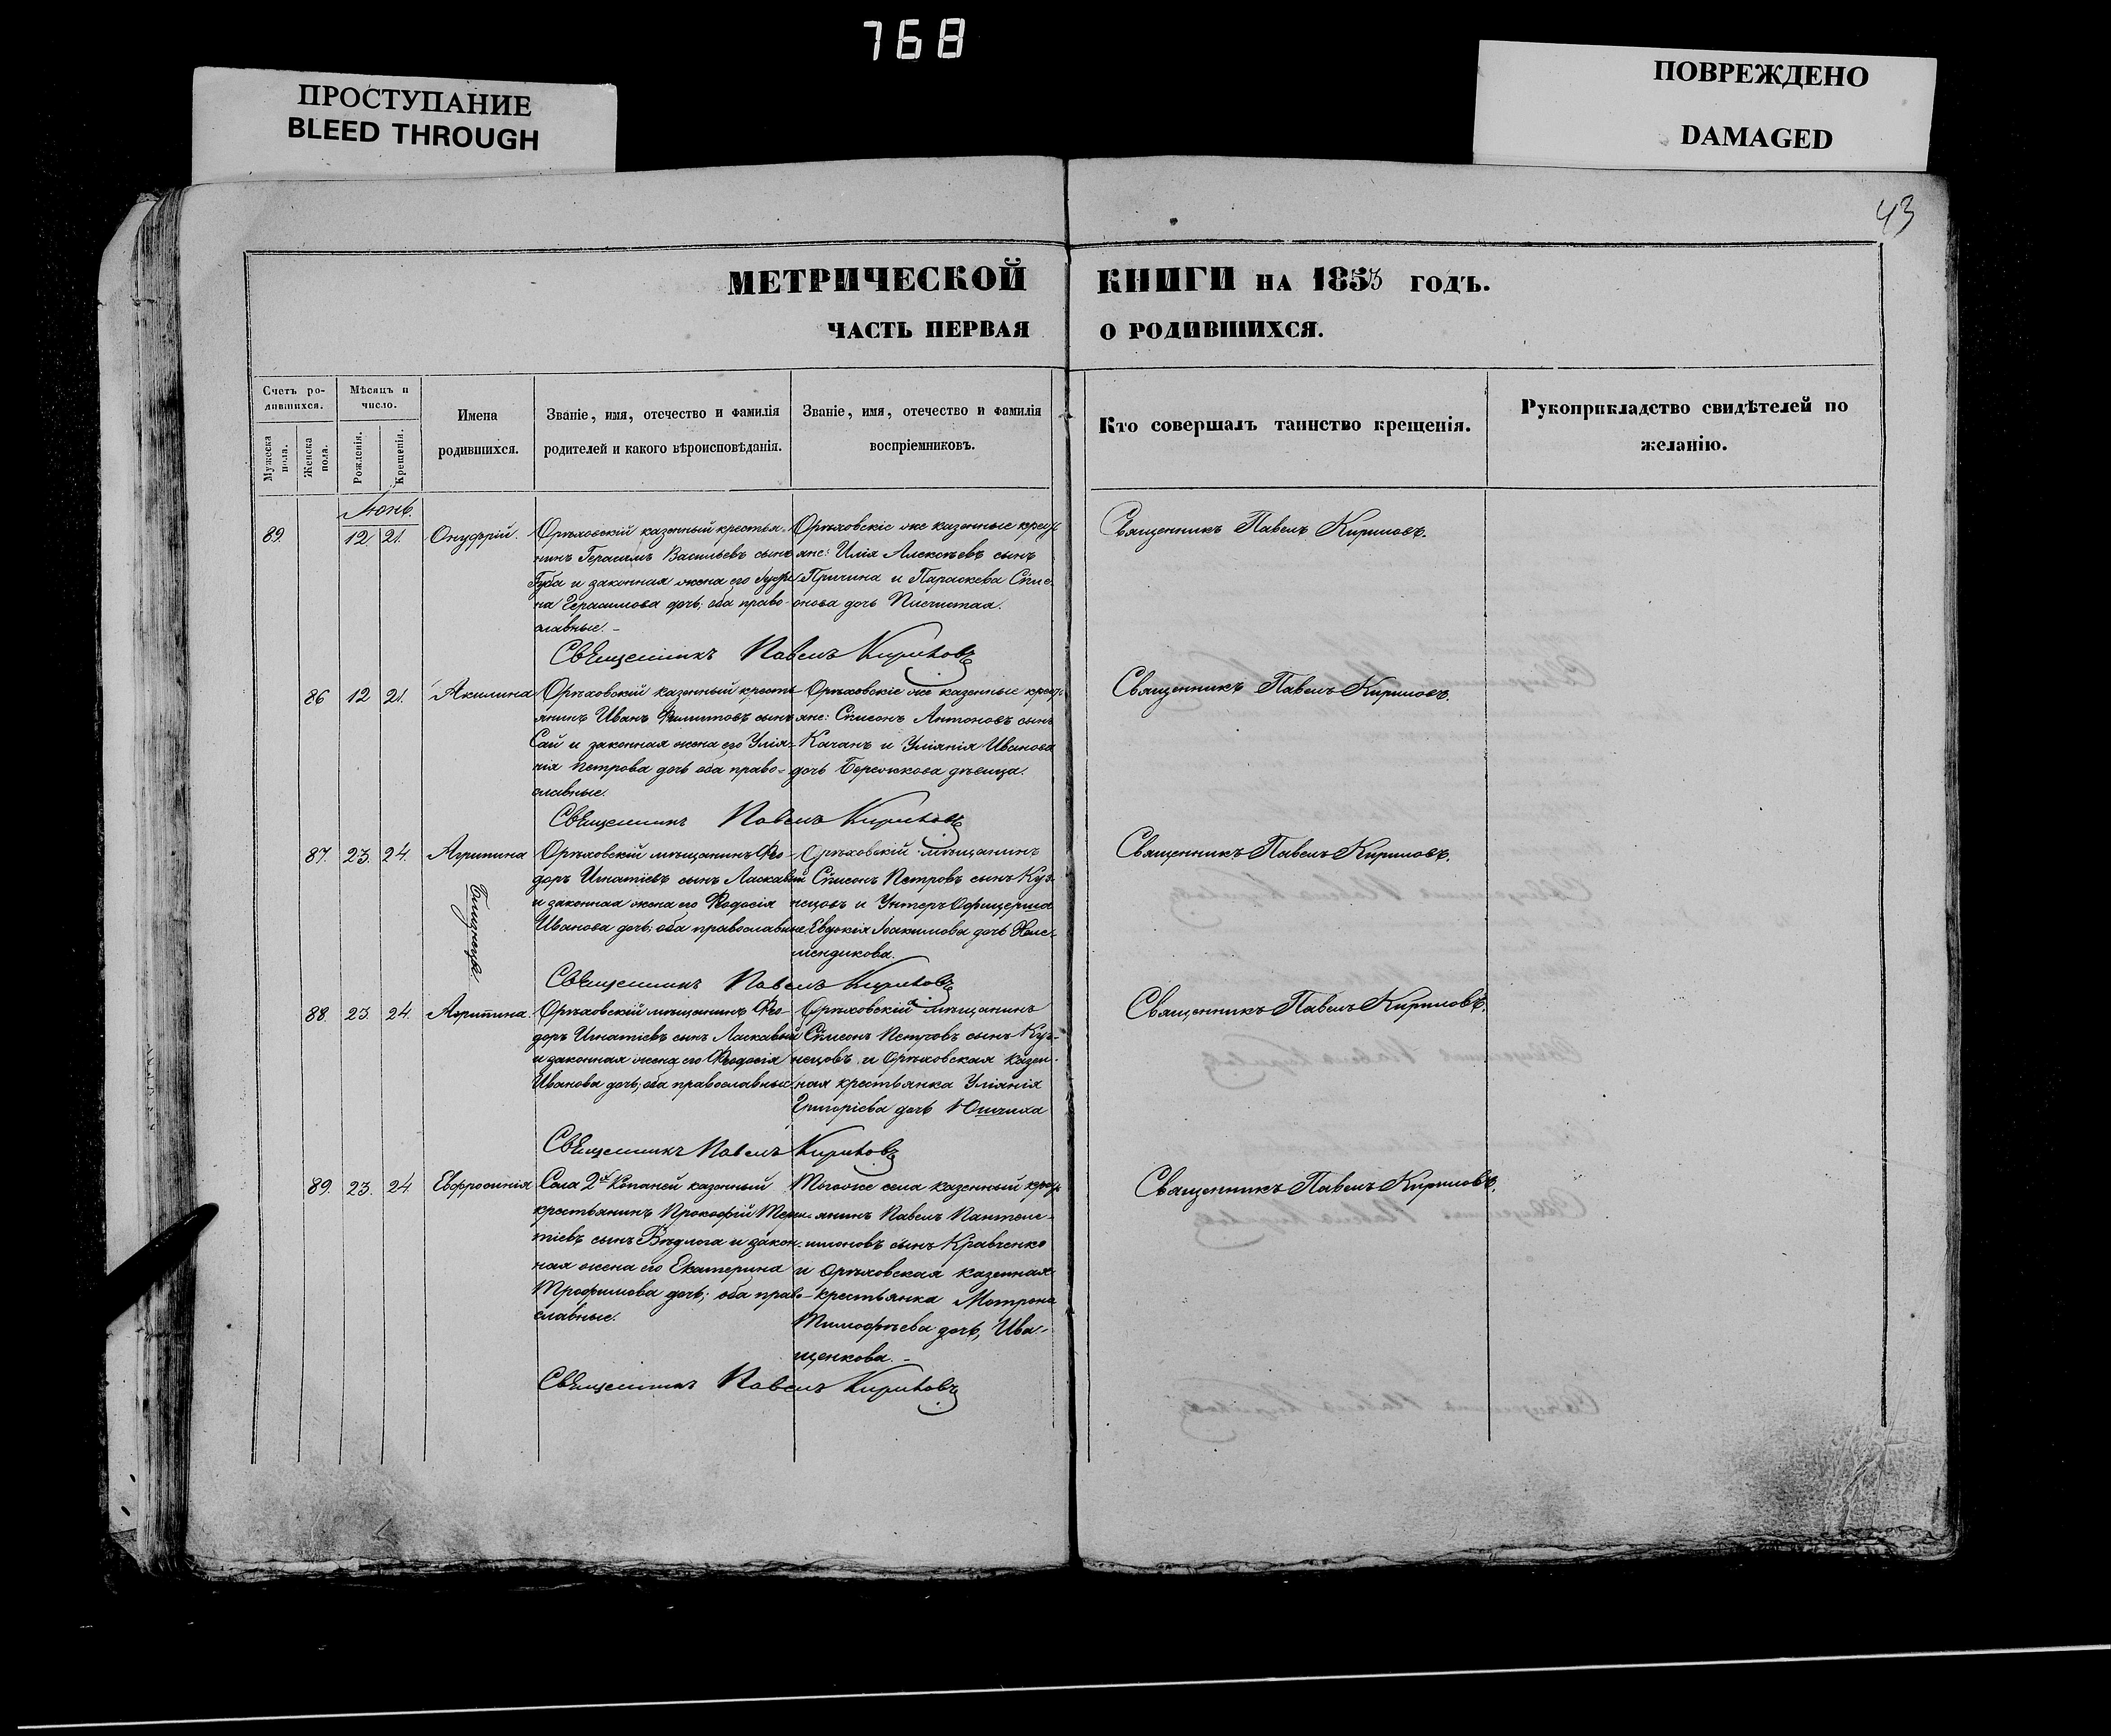 768
ПРОСТУПАНИЕ
BLEED THROUGH
ПОВРЕЖДЕНО
DAMAGED
43
МЕТРИЧЕСКОЙ КНИГИ НА 1853 ГОДЪ.
ЧАСТЬ ПЕРВАЯ О РОДИВШИХСЯ.
Счетъ ро-
дившихся.
Мужеска
пола.
Женска
пола.
Мѣсяцъ и
число.
Рожденія.
Крещенія.
Имена
родившихся.
Званіе, имя, отечество и фамилія
родителей и какого вѣроисповѣданія.
Званіе, имя, отечество и фамилія
воспріемниковъ.
Кто совершалъ таинство крещенія.
Рукоприкладство свидѣтелей по
желанію.
Іюнь.
89. 12. 21. Онуфрій.
Орѣховскій казенный крестья-
нинъ Герасимъ Васильевъ сынъ
Губа и законная жена его
на Герасимова дочь; оба право-
славные. -
Орѣховскіе же казенные крест
яне: Илія Алексѣевъ сынъ
Причина и Параскева Спис-
онова дочь
Священникъ Павелъ Кириловъ.
Священникъ Павелъ Кириловъ
86 12 21. Акилина
Орѣховскій казенный кресть
янинъ Иванъ Филиповъ сынъ
Сай и законная жена его Улія-
нія Петрова дочь оба право-
славные.
Орѣховскіе же казенные крест
яне: Списонъ Антоновъ сынъ
Качанъ и Уліянія Иванова
дочь Бережкова дѣвица.
Священникъ Павелъ Кириловъ.
Священникъ Павелъ Кириловъ
87. 23. 24. Агрипина
Близнецы.
Орѣховскій мѣщанинъ Фео-
доръ Игнатіевъ сынъ Ласкавый
и законная жена его Феодосія
Иванова дочь; оба православные
Орѣховскій мѣщанинъ
Списонъ Петровъ сынъ Куз-
нецовъ и Унтеръ Офицерша
Евдокія Іоакимова дочь
Священникъ Павелъ Кириловъ.
Священникъ Павелъ Кириловъ
88. 23. 24. Агрипина.
Орѣховскій мѣщанинъ Фео-
доръ Игнатіевъ сынъ Ласкавый
и законная жена его Феодосія
Иванова дочь; оба православные
Орѣховскій мѣщанинъ
Списонъ Петровъ сынъ Куз-
нецовъ и Орѣховская казен-
ная крестьянка Уліянія
Григоріева дочь
Священникъ Павелъ Кириловъ.
Священникъ Павелъ Кириловъ
89. 23. 24 Евфросинія
Села 2й Копаней казенный
крестьянинъ Прокофій Терен
тіевъ сынъ Бѣдлога и закон-
ная жена его Екатерина
Трофимова дочь; оба право-
славные.
Тогоже села казенный крест
янинъ Павелъ Пантеле-
имоновъ сынъ Кравченко
и Орѣховская казенная
крестьянка Мотрона
Тимофѣева дочь, Ива-
щенкова. -
Священникъ Павелъ Кириловъ.
Священникъ Павелъ Кириловъ